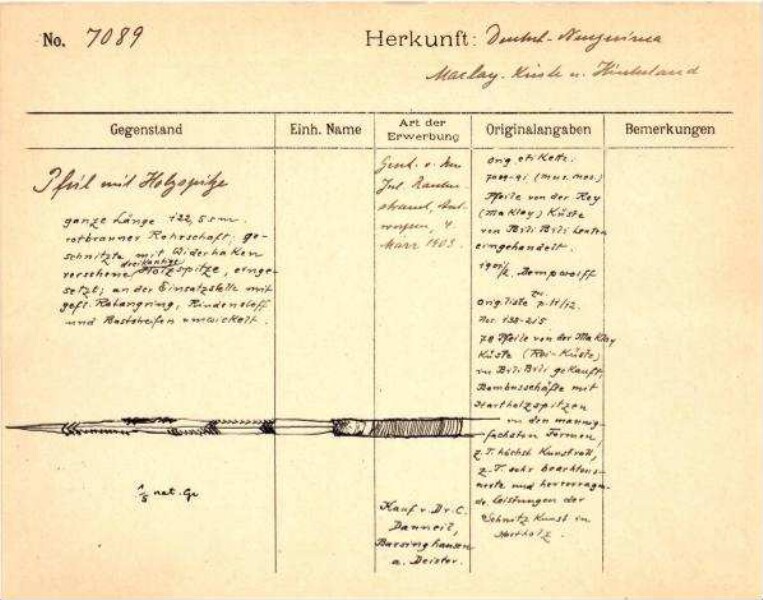 No. 7089
Herkunft: Deutsch-Neuguinea
Maclay-Küste u. Hinterland
Gegenstand
Einh. Name
Art der Erwerbung
Originalangaben
Bemerkungen
Pfeil mit Holzspitze
ganze Länge 122,5 cm.
rotbrauner Rohrschaft; ge-
schnitzte mit Widerhaken
versehene dreikantige Holzspitze, einge-
setzt; an der Einsatzstelle mit
gefl. Rotangring, Rindenstoff
und Baststreifen umwickelt.
1/5 nat. Gr
Gesch. v. Herrn
Jul.
strauch, Ant-
werpen, 4.
März 1903.
Kauf v. Dr. C.
Danneil,
Barsinghausen
a. Deister.
Orig. etikette.
7089-91 (mus. mos.)
Pfeile von der Rey
(Maklay) Küste
von Bili Bili Leuten
eingehandelt.
Dempwolff
Orig. liste zu
Nor. 138-215
78 Pfeile von der Maklay
Küste (Rai-Küste)
in Bili Bili gekauft;
Bambusschäfte mit
Hartholzspitzen
in den mannig-
fachsten Formen,
z. T. höchst kunstvoll,
z. T. sehr beachtens-
werte und hervorragen-
de Leistungen der
Schnitz Kunst in
Hartholz.